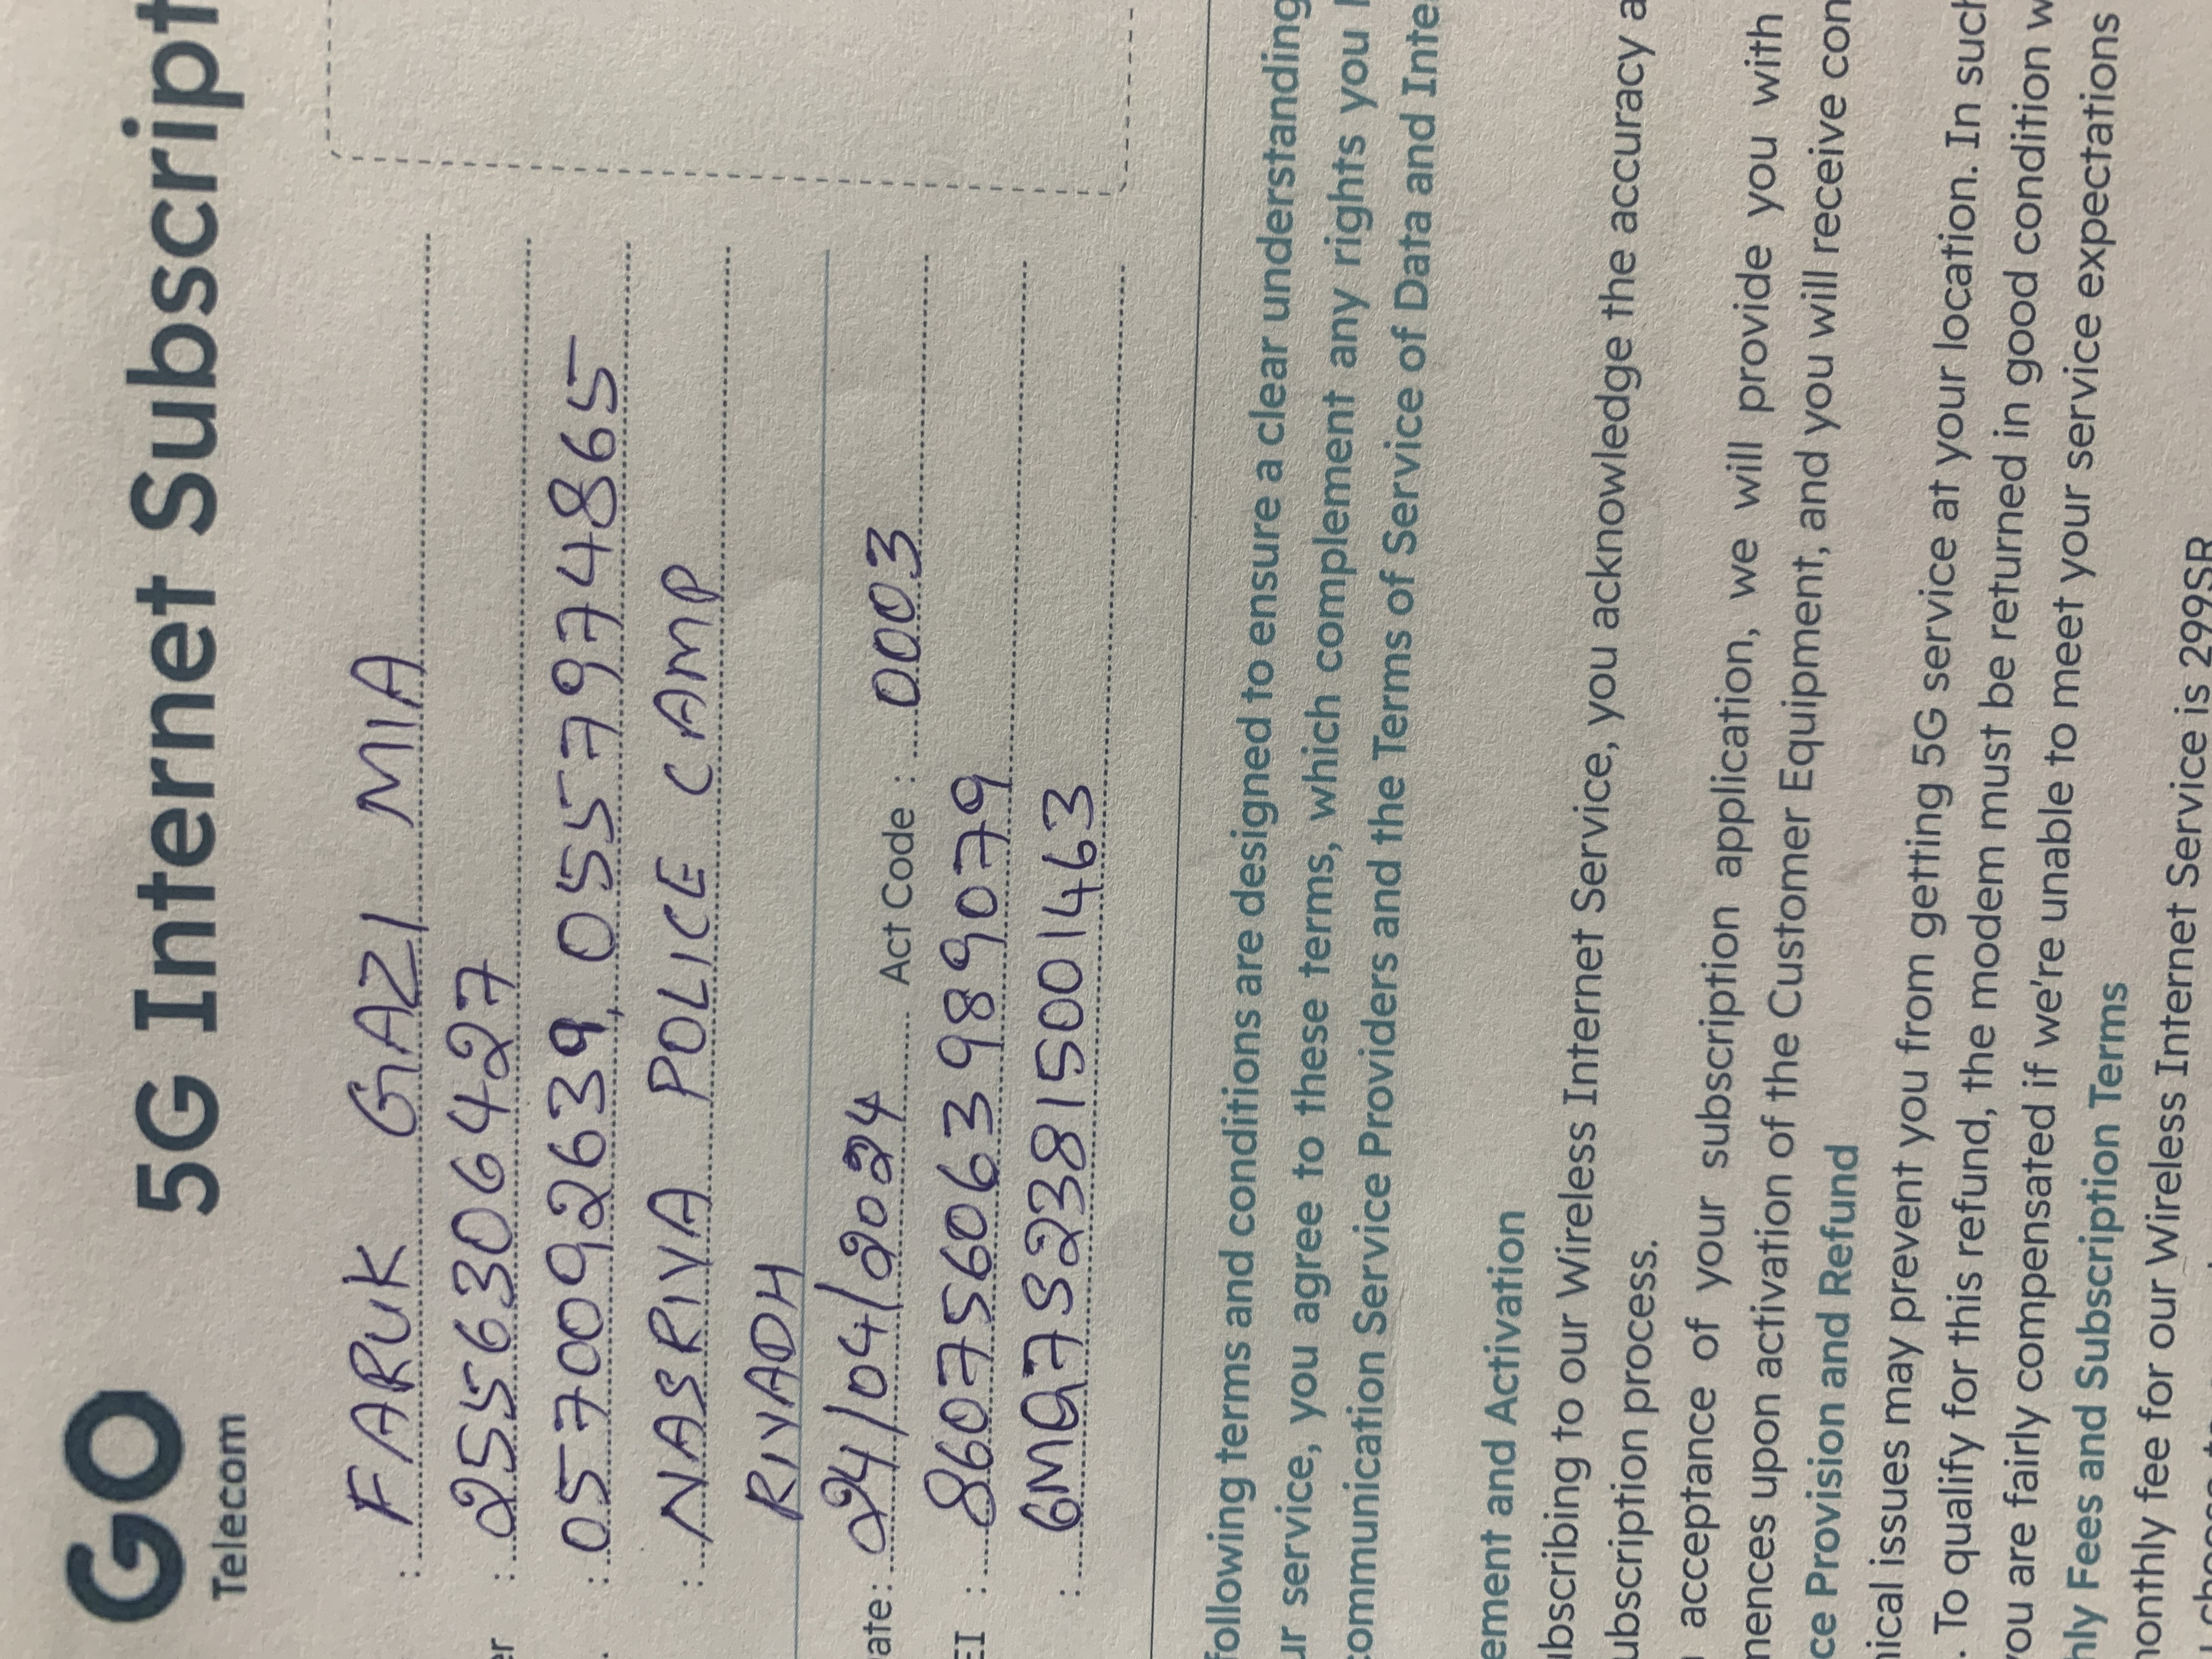 GO
Telecom
5G Internet Subscript
: FARUK GAZI MIA
er : 2556306427
: 0570092639, 0557974865
: NASRIYA POLICE CAMP
RIYADH
ate: 24/04/2024 Act Code : 0003
EI : 860756063989079
: 6MQ7S23815001463
following terms and conditions are designed to ensure a clear understanding
ur service, you agree to these terms, which complement any rights you
communication Service Providers and the Terms of Service of Data and Inte
ement and Activation
ubscribing to our Wireless Internet Service, you acknowledge the accuracy a
ubscription process.
acceptance of your subscription application, we will provide you with
mences upon activation of the Customer Equipment, and you will receive con
ce Provision and Refund
nical issues may prevent you from getting 5G service at your location. In such
. To qualify for this refund, the modem must be returned in good condition w
you are fairly compensated if we're unable to meet your service expectations
hly Fees and Subscription Terms
monthly fee for our Wireless Internet Service is 299SR